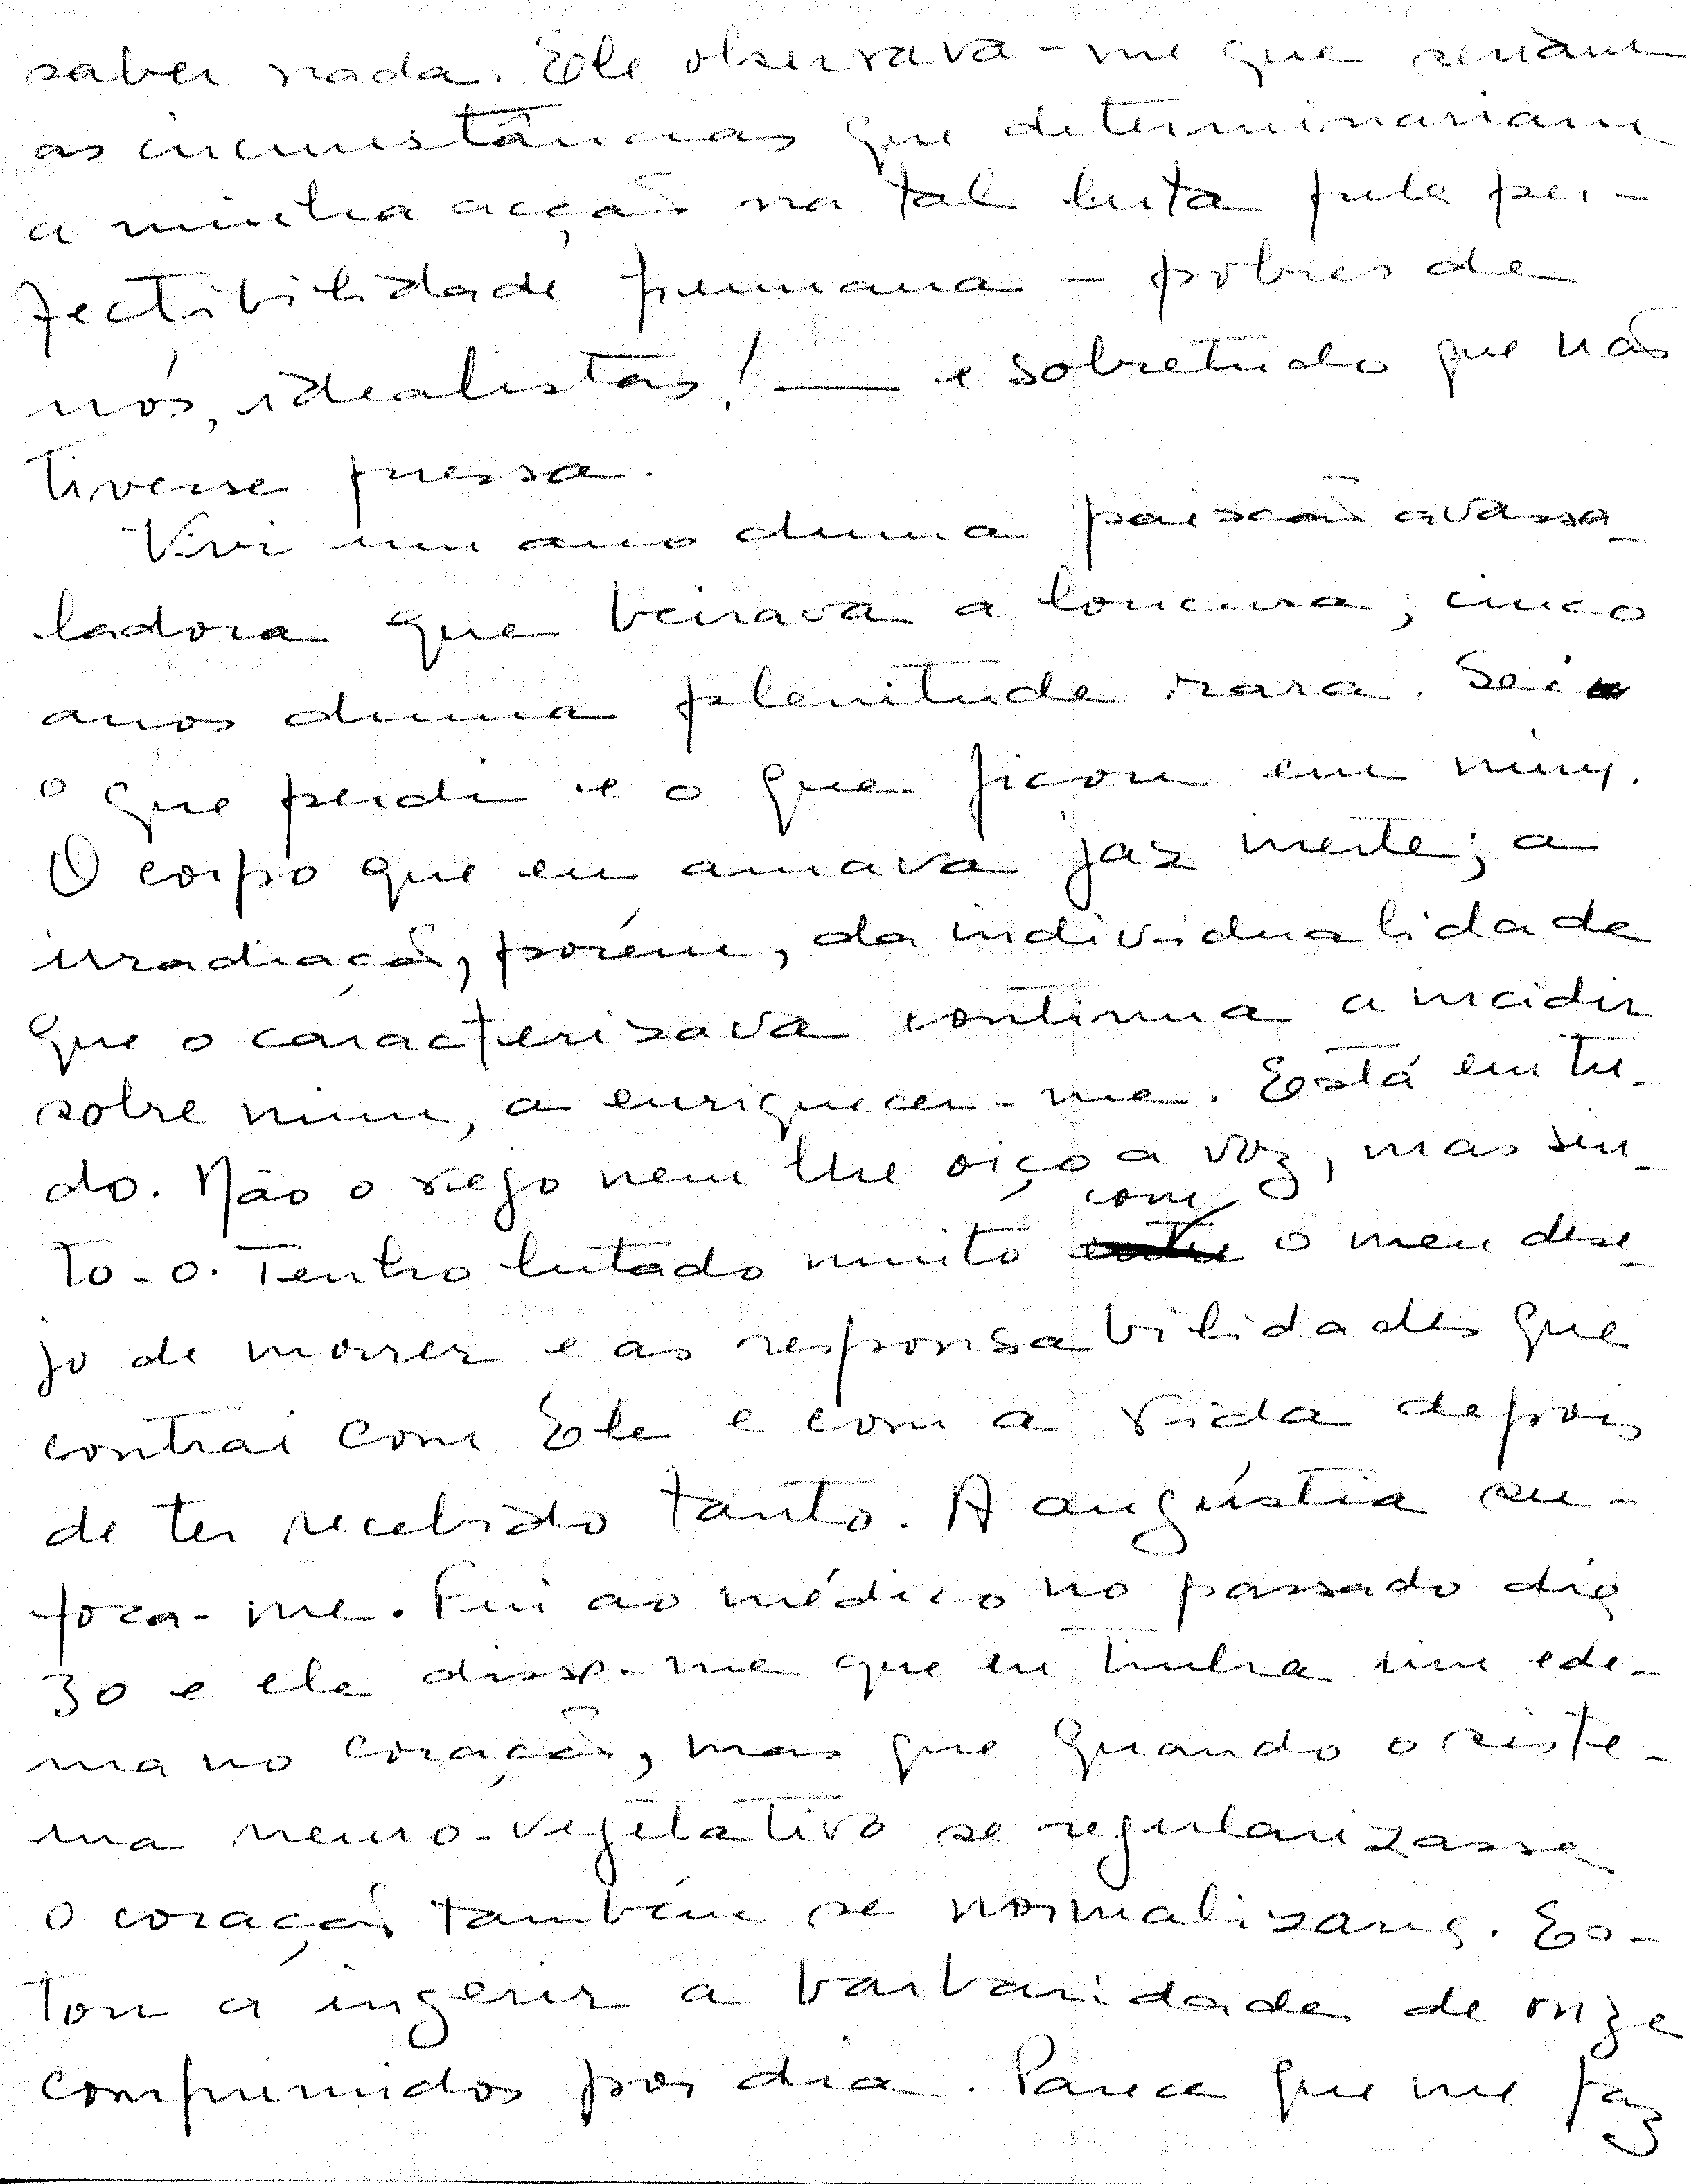 saber nada. Ele observava-me que seriam
as circunstâncias que determinariam
a minha acção na tal luta pela per-
fectibilidade humana — pobres de
nós, idealistas! — e sobretudo que não
tivesse pressa.
Vivi um ano duma paixão avassa-
ladora que beirava a loucura; cinco
anos duma plenitude rara. Sei
o que perdi e o que ficou em mim.
O corpo que eu amava jaz inerte; a
irradiação, porém, da individualidade
que o caracterisava continua a incidir
sobre mim, a enriquecer-me. Está em tu-
do. Não o vejo nem lhe oiço a voz, mas sin-
to-o. Tenho lutado muito com o meu dese-
jo de morrer e as responsabilidades que
contraí com Ele e com a vida depois
de ter recebido tanto. A angústia su-
foca-me. Fui ao médico no passado dia
30 e ele disse-me que eu tinha um ede-
ma no coração, mas que quando o siste-
ma neuro-vegetativo se regularizasse
o coração também se normalizaria. Es-
tou a ingerir a barbaridade de onze
comprimidos por dia. Parece que me faz